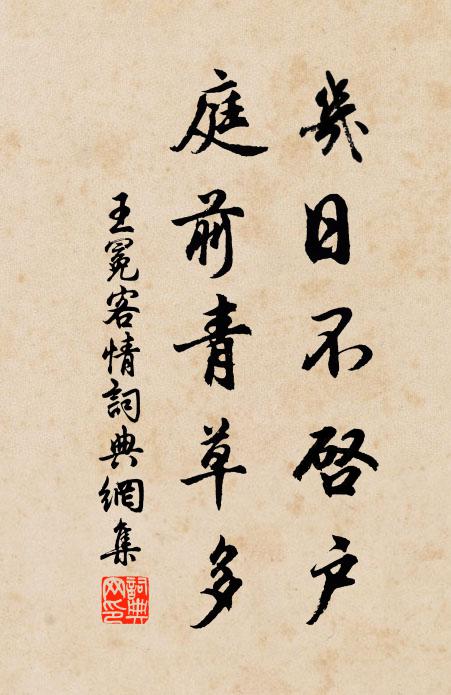 幾日不啓户
庭前青草多
王冕客情詞典網集
詞典網印